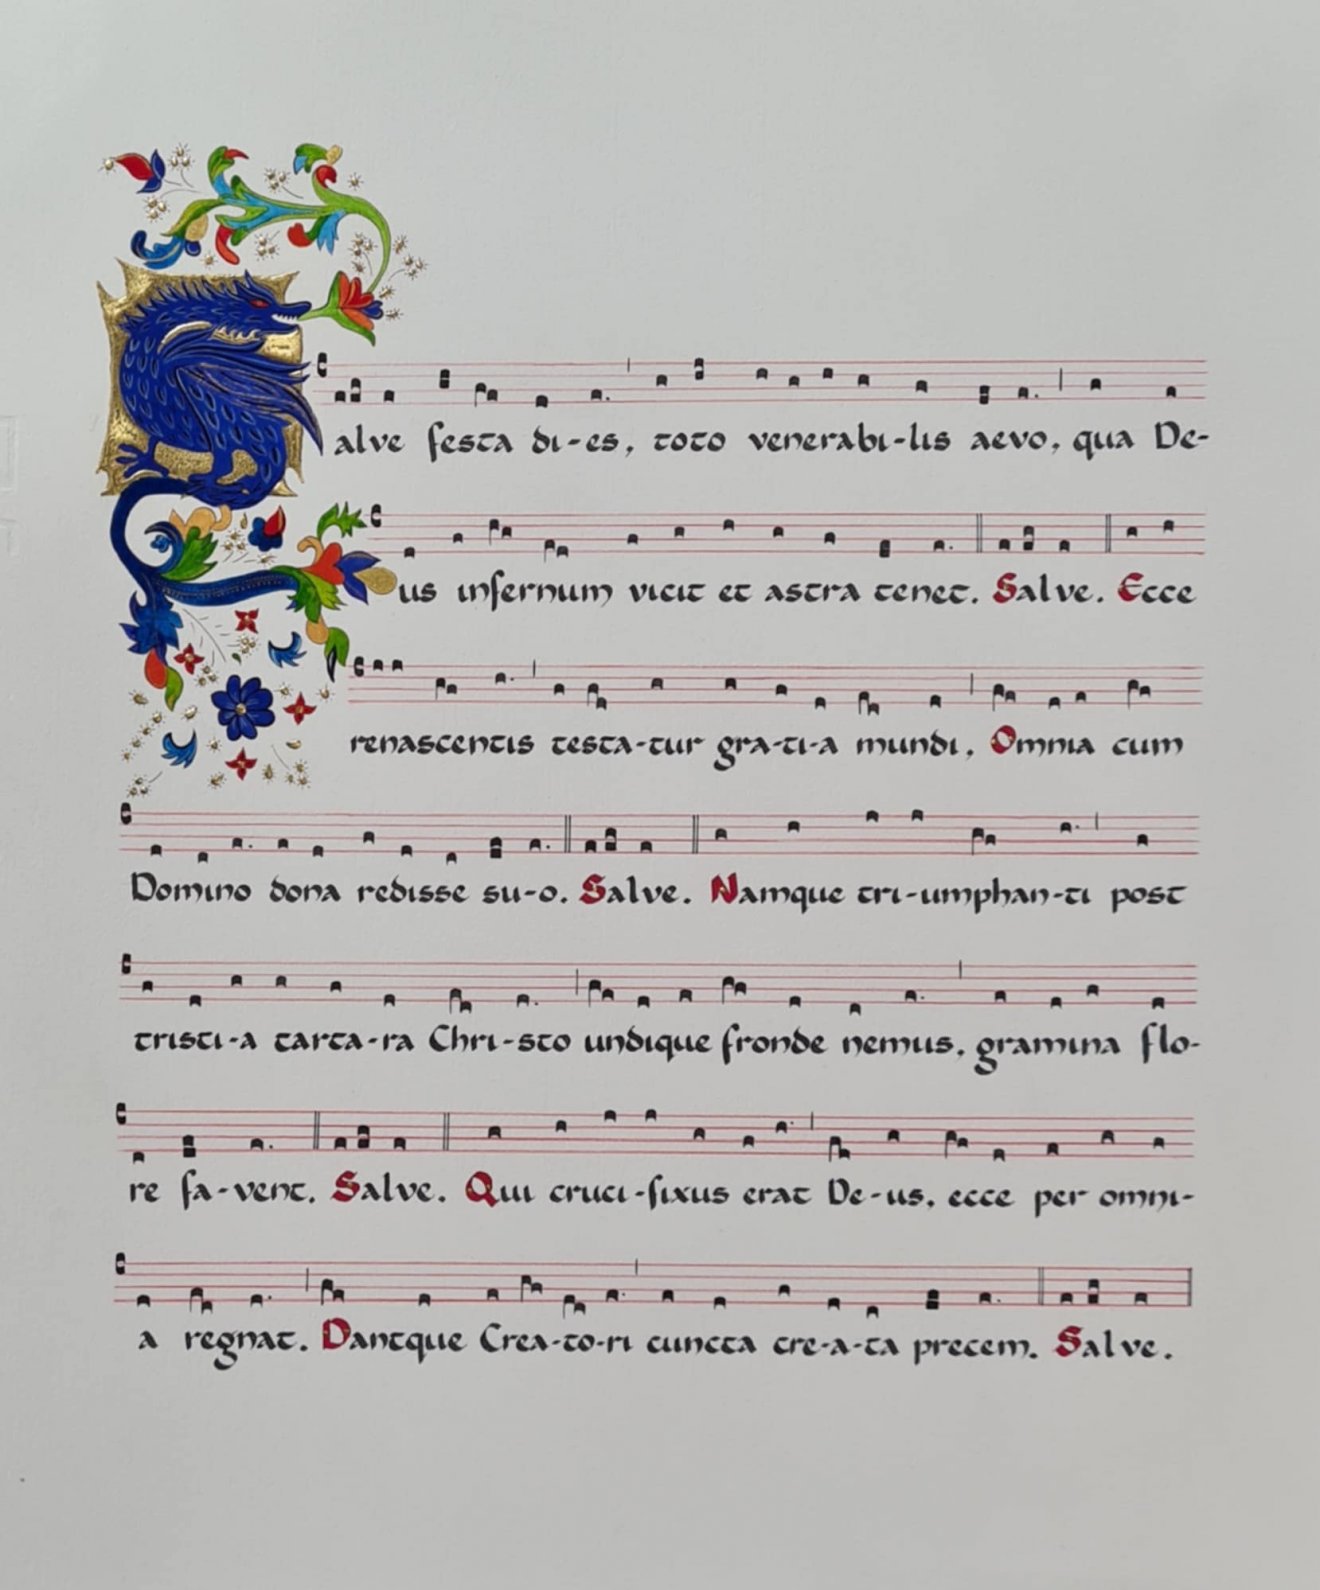 Salve festa di-es, toto venerabi-lis aevo, qua De-
us infernum vicit et astra tenet. Salve. Ecce
renascentis testa-tur gra-ti-a mundi, Omnia cum
Domino dona redisse su-o. Salve. Namque tri-umphan-ti post
tristi-a tarta-ra Chri-sto undique fronde nemus, gramina flo-
re fa-vent. Salve. Qui cruci-fixus erat De-us, ecce per omni-
a regnat. Dantque Crea-to-ri cuncta cre-a-ta precem. Salve.